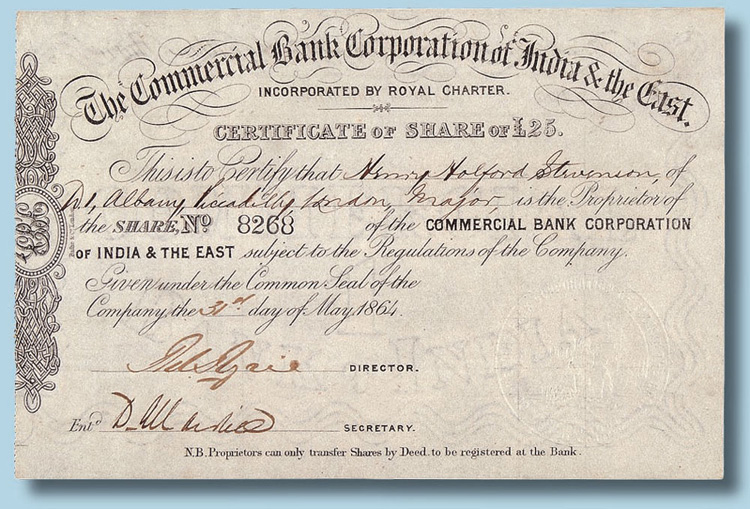 The Commercial Bank Corporation of India & the East.
INCORPORATED BY ROYAL CHARTER.
CERTIFICATE OF SHARE OF £25.
This is to Certify that Henry Holford Stevenson, of
Albany Piccadilly London, Major, is the Proprietor of
the SHARE, No. 8268 of the COMMERCIAL BANK CORPORATION
OF INDIA & THE EAST subject to the Regulations of the Company.
Given under the Common Seal of the
Company the 31st day of May 1864.
DIRECTOR.
Entd. SECRETARY.
N.B. Proprietors can only transfer Shares by Deed, to be registered at the Bank.